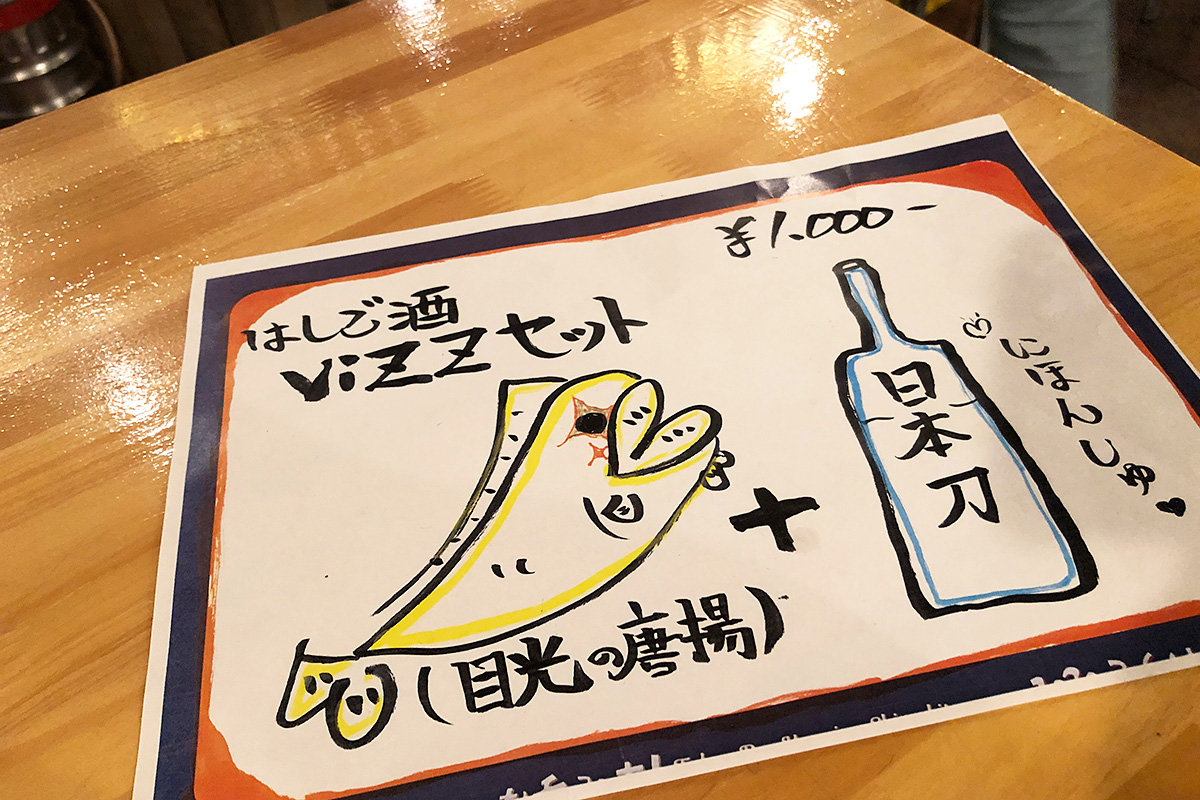 ¥1.000-
はしご酒
ViZZセット
(目光の唐揚)
+
日本刀
にほんしゅ